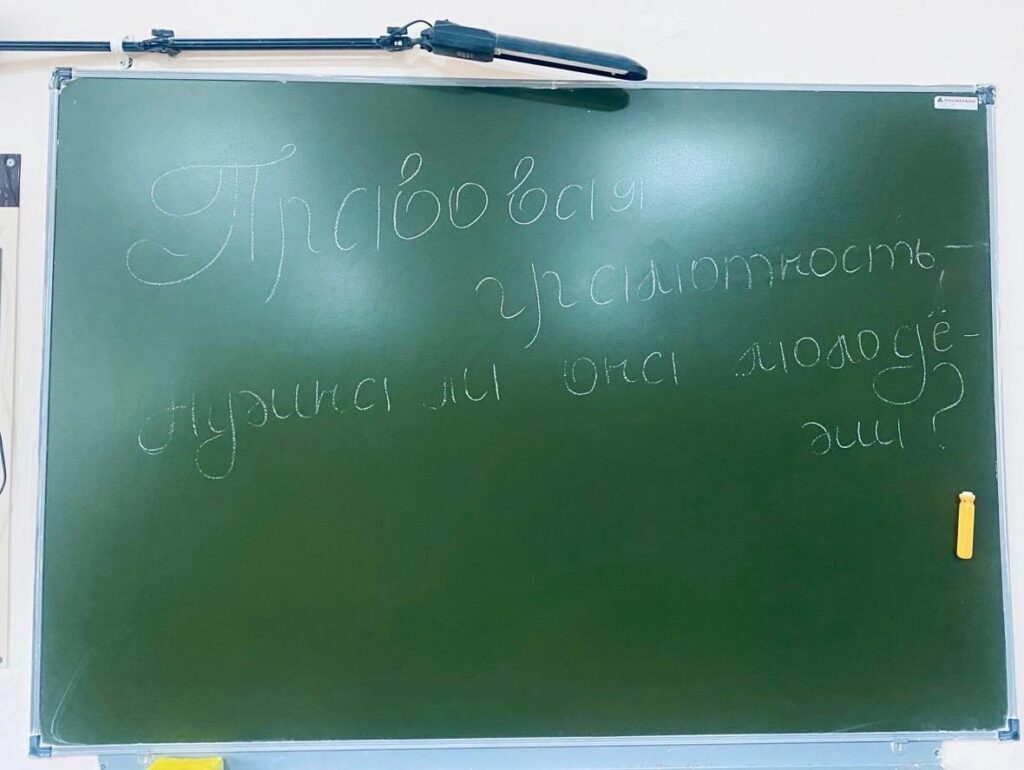 Правовая
грамотность,-
нужна ли она молодё-
жи?